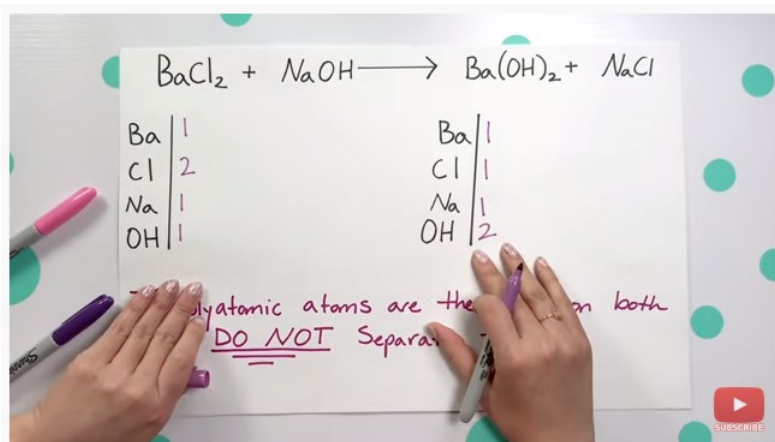 BaCl₂ + NaOH ⟶ Ba(OH)₂ + NaCl
Ba 1
Cl 2
Na 1
OH 1
Ba 1
Cl 1
Na 1
OH 2
atoms are on both
DO NOT
SUBSCRIBE